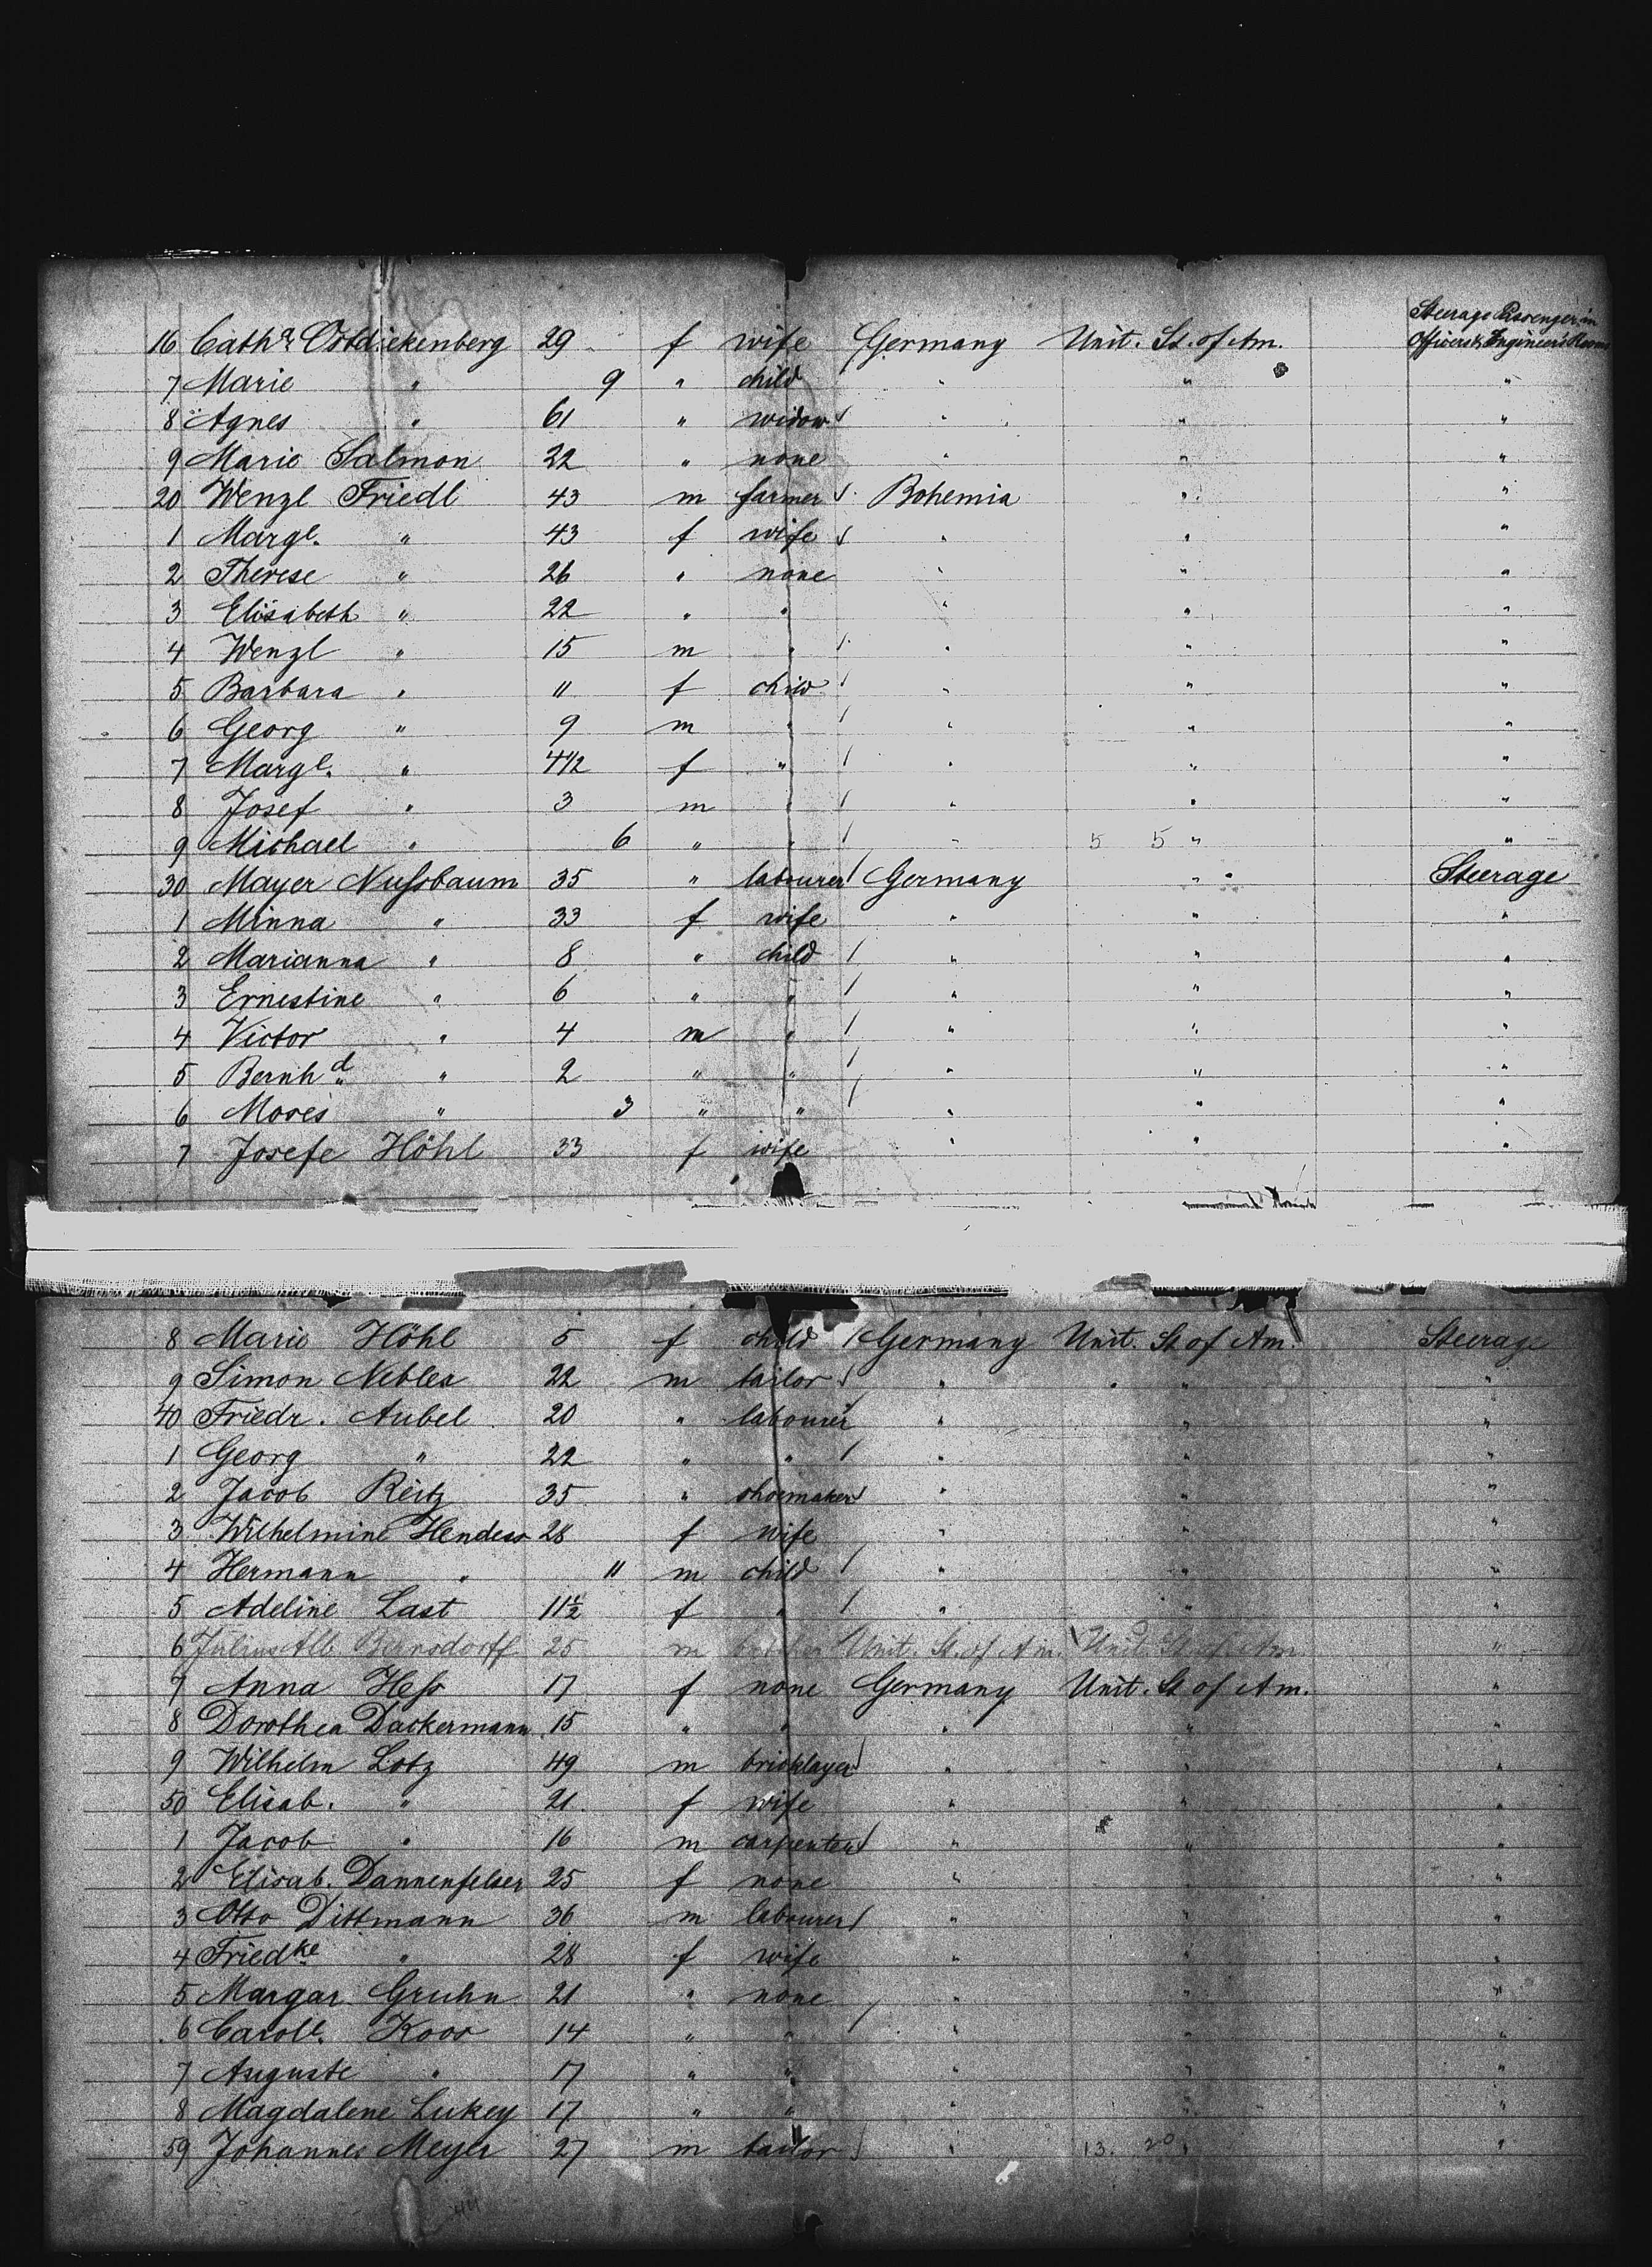 Steerage Passenger in
16 Cathe. Ostdiekenberg 29 f wife Germany Unit. St. of Am. Officers & Engineers Rooms
7 Marie " 9 " child " " "
8 Agnes " 61 " widow " " "
9 Marie Salmon 22 " none " " "
20 Wenzl Friedl 43 m farmer Bohemia " "
1 Marge. " 43 f wife " " "
2 Therese " 26 " none " " "
3 Elisabeth " 22 " " " " "
4 Wenzl " 15 m " " " "
5 Barbara " 11 f child " " "
6 Georg " 9 m " " " "
7 Marge. " 4 1/2 f " " " "
8 Josef " 3 m " " " "
9 Michael " 6 " " " 5 5 " "
30 Mayer Nußbaum 35 " labourer Germany " Steerage
1 Minna " 33 f wife " " "
2 Marianna " 8 " child " " "
3 Ernestine " 6 " " " " "
4 Victor " 4 m " " " "
5 Bernhd " 2 " " " " "
6 Moses " 3 " " " " "
7 Josefe Höhl 33 f wife " " "
8 Marie Höhl 5 f child Germany Unit. St of Am. Steerage
9 Simon Nebles 22 m tailor " " "
40 Friedr. Aubel 20 " labourer " " "
1 Georg " 22 " " " " "
2 Jacob Reitz 35 " shoemaker " " "
3 Wilhelmine Hendess 28 f wife " " "
4 Hermann " 11 m child " " "
5 Adeline Last 11 1/2 f " " " "
6 Julius Alb. Bernsdorff 25 m Unit. St. of Am. Unit. St of Am. "
7 Anna Heß 17 f none Germany Unit. St of Am. "
8 Dorothea Dackermann 15 " " " " "
9 Wilhelm Lotz 49 m bricklayer " " "
50 Elisab. " 21 f wife " " "
1 Jacob " 16 m carpenter " " "
2 Elisab. Dannenfelser 25 f none " " "
3 Otto Dittmann 36 m labourer " " "
4 Friedke " 28 f wife " " "
5 Margar. Gruhn 21 " none " " "
6 Carole. Koos 14 " " " " "
7 Auguste " 17 " " " " "
8 Magdalene Lukey 17 " " " " "
59 Johannes Meyer 27 m tailor " 13. 20 " "